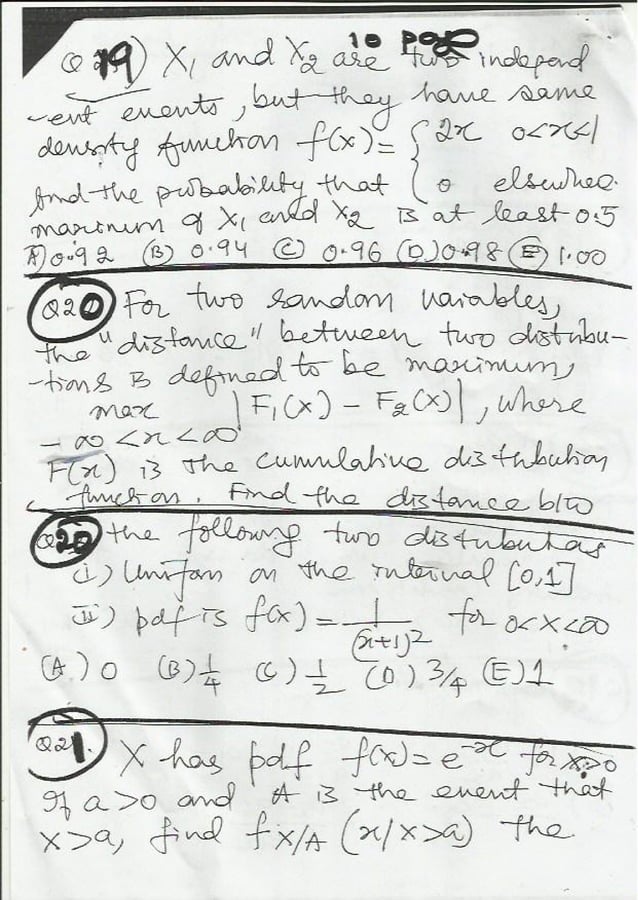 10 pag
Q 19) X₁ and X₂ are two independ
-ent events, but they have same
density function f(x) = { 2x 0<x<1
find the probability that 0 elsewhere.
maximum of X₁ and X₂ is at least 0.5
A) 0.92 (B) 0.94 (C) 0.96 (D) 0.98 (E) 1.00
Q20 For two random variables,
the "distance" between two distribu-
-tions is defined to be maximum,
max |F₁(x) - F₂(x)|, where
-∞ < x < ∞
F(x) is the cumulative distribution
function. Find the distance b/w
Q20 the following two distributions
(I) Uniform on the interval [0,1]
II) pdf is f(x) = 1/(x+1)² for 0<x<∞
(A) 0 (B) 1/4 (C) 1/2 (D) 3/4 (E) 1
Q21. X has pdf f(x) = e^-x for x>0
If a>0 and A is the event that
X>a, find fX/A (x/x>a) the